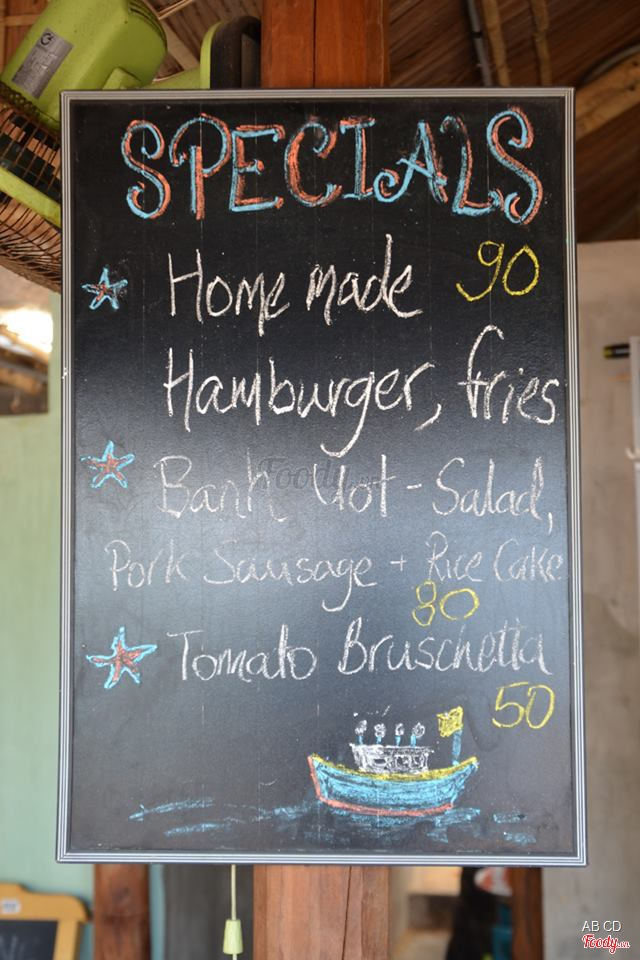 SPECIALS
Home made 90
Hamburger, fries
Banh Uot - Salad,
Pork Sausage + Rice Cake
80
Tomato Bruschetta
50
Foody.vn
AB CD
Foody.vn